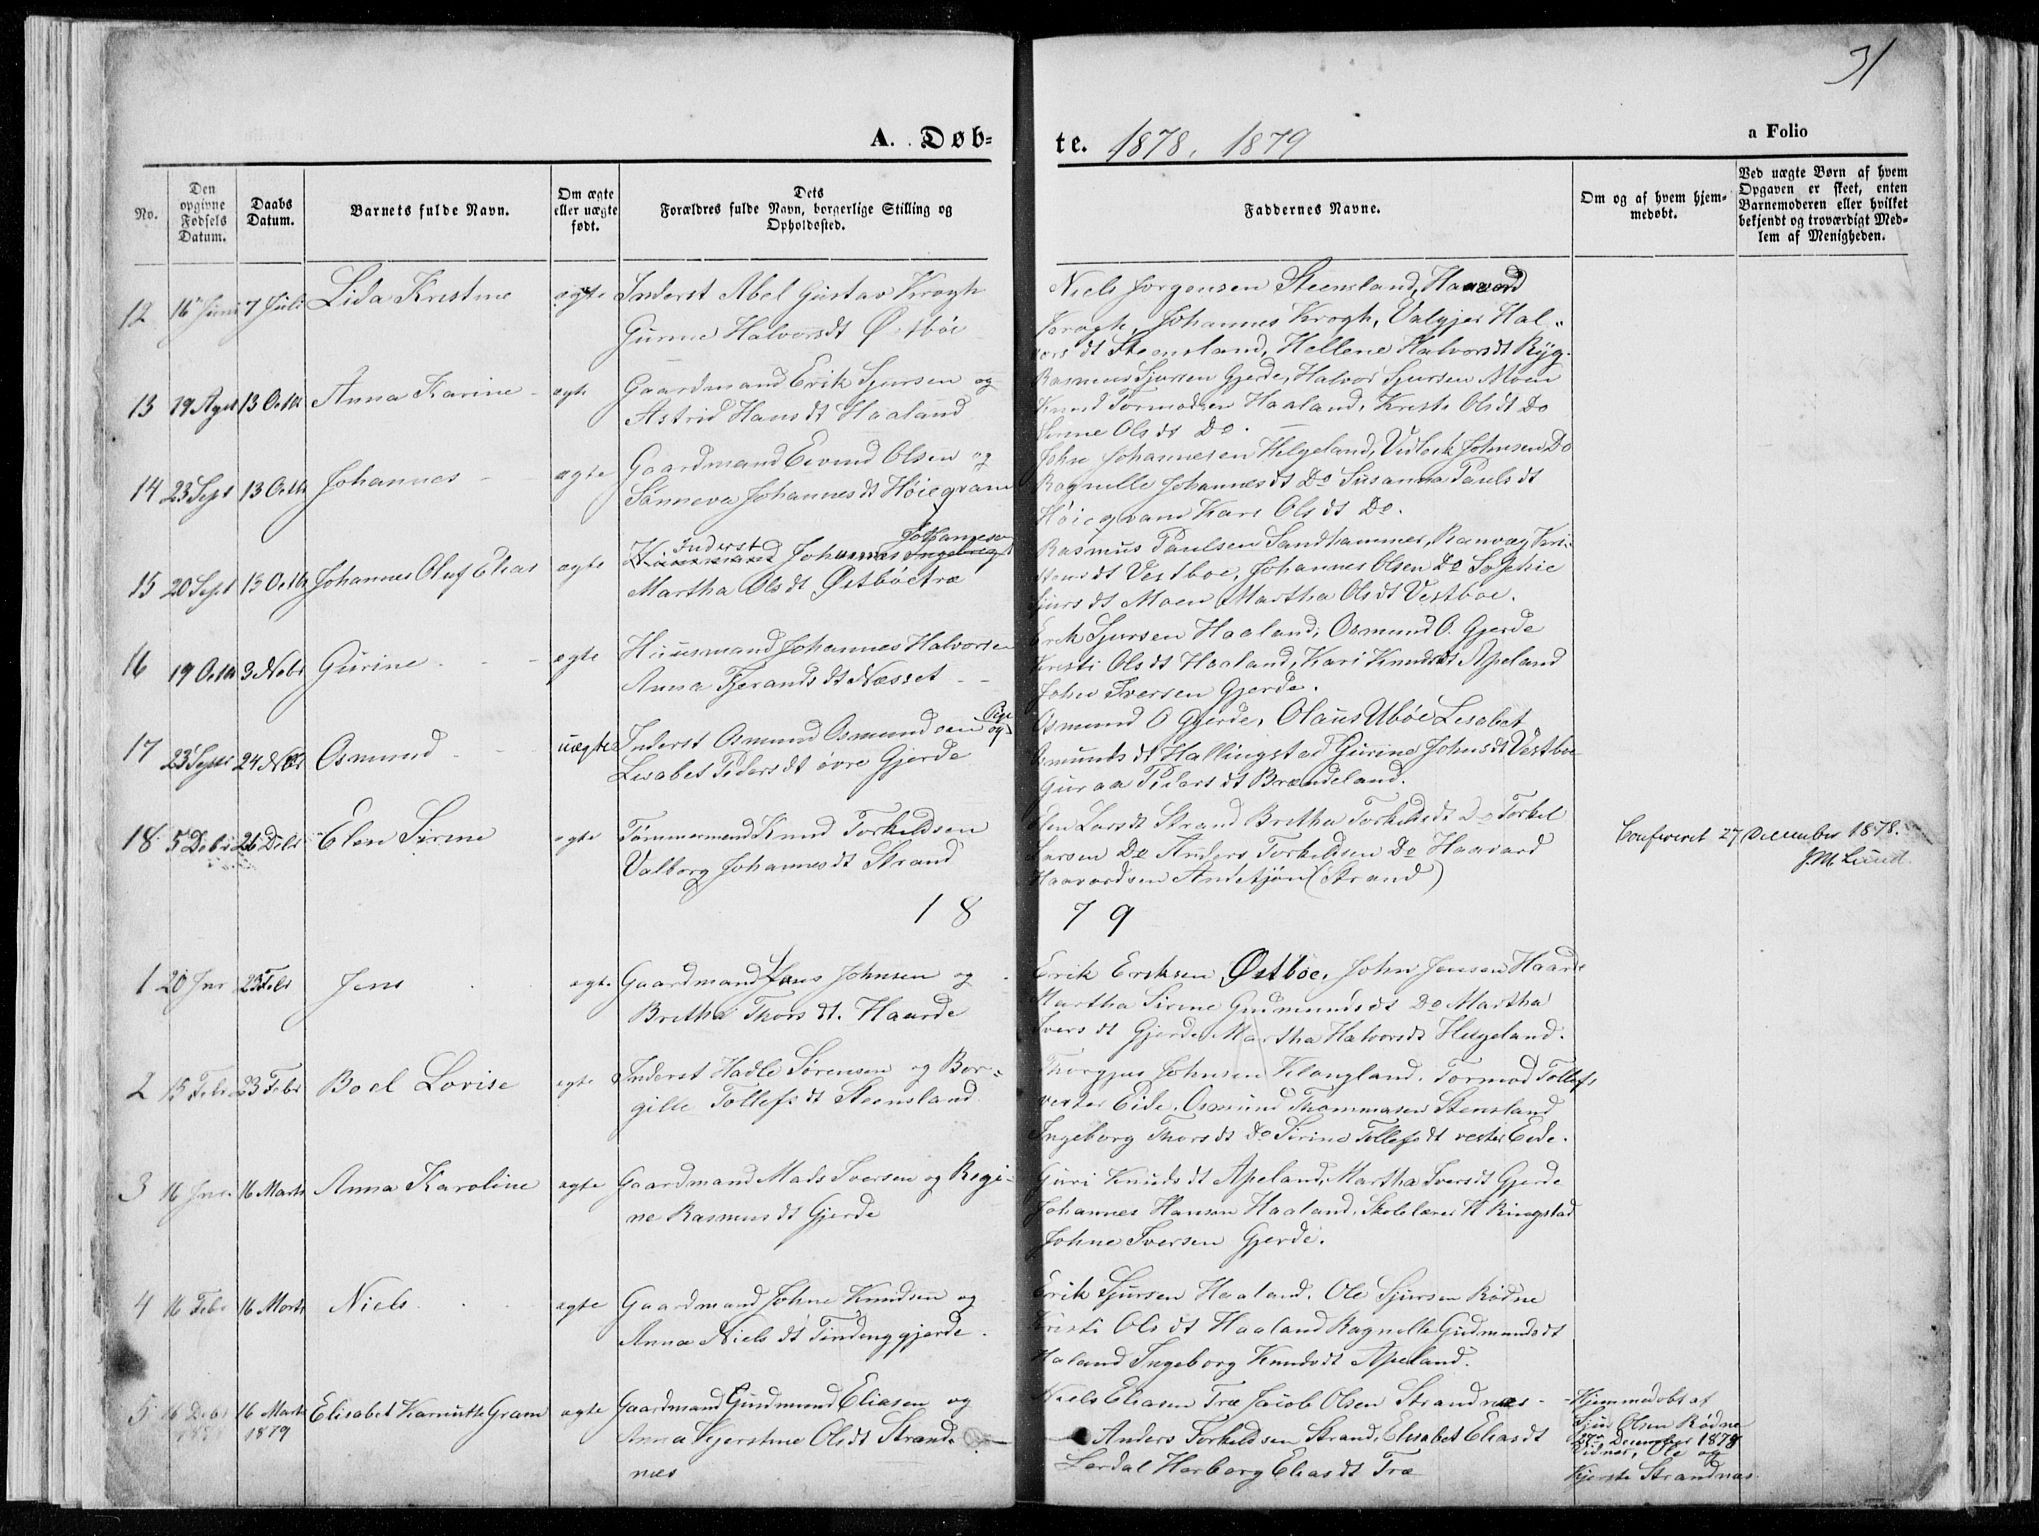 31
A. Døb-
te. 1878, 1879
a Folio
No.
Den opgivne Fødsels Datum.
Daabs Datum.
Barnets fulde Navn.
Om ægte eller uægte født.
Dets
Forældres fulde Navn, borgerlige Stilling og
Opholdssted.
Faddernes Navne.
Om og af hvem hjem-
medøbt.
Ved uægte Børn af hvem
Opgaven er skeet, enten
Barnemoderen eller hvilket
bekjendt og troværdigt Med-
lem af Menigheden.
12 16 Juni 7 Juli Lida Kristine ægte Inderst Abel Gustav Krogh
Gurine Halvorsdt Østbøe
Niels Jorgensen Steensland, Haavard
Krogh, Johannes Krogh, Valgjer Hal-
vorsdt Steensland, Hellene Halvorsdt Ryg.
13 19 Agst 13 Octbr Anna Karine - ægte Gaardmand Erik Sjursen og
Astrid Hansdt Haaland
Rasmus Sjursen Gjerde, Halvor Sjursen Moen
Knud Tormodsen Haaland, Kristi Olsdt Do
Serine Olsdt Do.
14 23 Sept 13 Octbr Johannes - - ægte Gaardmand Eivind Olsen og
Sanneva Johannesdt Høiegvam
John Johannesen Helgeland, Johnsen Do
Ragnille Johannesdt Do Susanna Paulsdt
Høiegvam Kari Olsdt Do.
15 20 Sept 13 Octbr Johannes Oluf Elias ægte Huusmand Inderst Johannes Ingebrigt Johannesen
Martha Olsdt Østbøetræ
Rasmus Paulsen Sandhammer, Ranvæg Kri-
stensdt Vestboe, Johannes Olsen Do Sophie
Sjursdt Moen Martha Olsdt Vestboe.
16 19 Octbr 3 Nobr Gurine - - - ægte Huusmand Johannes Halvorsen
Anna Tjerandsdt Næsset - -
Erik Sjursen Haaland, Osmund O. Gjerde
Kristi Olsdt Haaland, Kari Knudsdt Apeland
John Iversen Gjerde.
17 23 Septr 24 Nobr Osmund - - uægte Inderst Osmund Osmundsen og Pige
Lisabet Pedersdt øvre Gjerde
Osmund O Gjerde, Olaus Ubøe Lisabet
Osmundsdt Hallingstad Gurine Johnsdt Vestboe
Guraa Pedersdt Brændeland.
18 5 Debr 26 Debr Elen Sirine ægte Tømmermand Knud Torkeldsen
Valborg Johannesdt Strand
Elen Larsdt Strand Bretha Torkeldsdt Do Torkel
Larsen Do Anders Torkeldsen Do Haavard
Haavardsen (Strand)
Confereret 27 December 1878.
J. M. Lund
18
79
1 20 Jnr 23 Febr Jens ægte Gaardmand Hans Johnsen og
Bretha Thorsdt. Haarde
Erik Eriksen Østbøe, John Jensen Haarde
Martha Sirine Gudmundsdt Do Martha
Iversdt Gjerde, Martha Halvorsdt Helgeland.
2 15 Febr 23 Febr Boel Lovise ægte Inderst Hadle Sørensen og Bor-
gille Tollefsdt Steensland
Thorgjus Johnsen Klangland, Tormod Tollefs
vester Eide, Osmund Thommasen Stensland
Ingeborg Thorsdt do Sirine Tollefsdt vester Eide.
3 16 Jnr. 16 Marts Anna Karoline ægte Gaardmand Mads Iversen og Regi-
ne Rasmusdt Gjerde
Guri Knudsdt Apeland, Martha Iversdt Gjerde
Johannes Hansen Haaland, Skolelærer H Ringstad
Johne Iversen Gjerde.
4 16 Febr 16 Marts Niels ægte Gaardmand Johne Knudsen og
Anna Nielsdt Tindenggjerde.
Erik Sjursen Haaland. Ole Sjursen Rødne
Kristi Olsdt Haaland Ragnille Gudmundsdt
Haland Ingeborg Knudsdt Apeland.
5 16 Debr 16 Marts Elisabet Karnutte Gram ægte Gaardmand Gudmund Eliasen og
1879
Anna Kjerstine Olsdt Strand-
næs
Niels Eliasen Træ Jacob Olsen Strandnæs -
Anders Torkeldsen Strand, Elisabet Eliasdt
Lerdal Herborg Eliasdt Træ
Hjemmedøbt af
Sjur Olsen Rødne
December 1878
Vidner, Ole og
Kjersti Strandnæs.